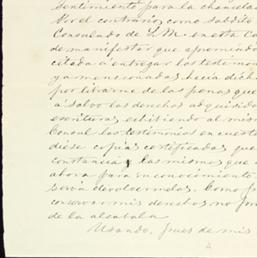 sentimiento para la chancela
Por el contrario, como súbdito
Consulado de S. M. en esta Ca
de manifestar que apremiado
citada a entregar los testimon
y a mencionados, hacía dicha
por librarme de las penas que
á salvo los derechos adquirido
escrituras, exhibiendo al mism
Consul los testimonios en cuest
diese copias certificadas que
constancia y las mismas que a
ahora para su conocimiento
servirá devolvermelas. Como
conservar mis derechos no
de la alcabala
Usando, pues de mis